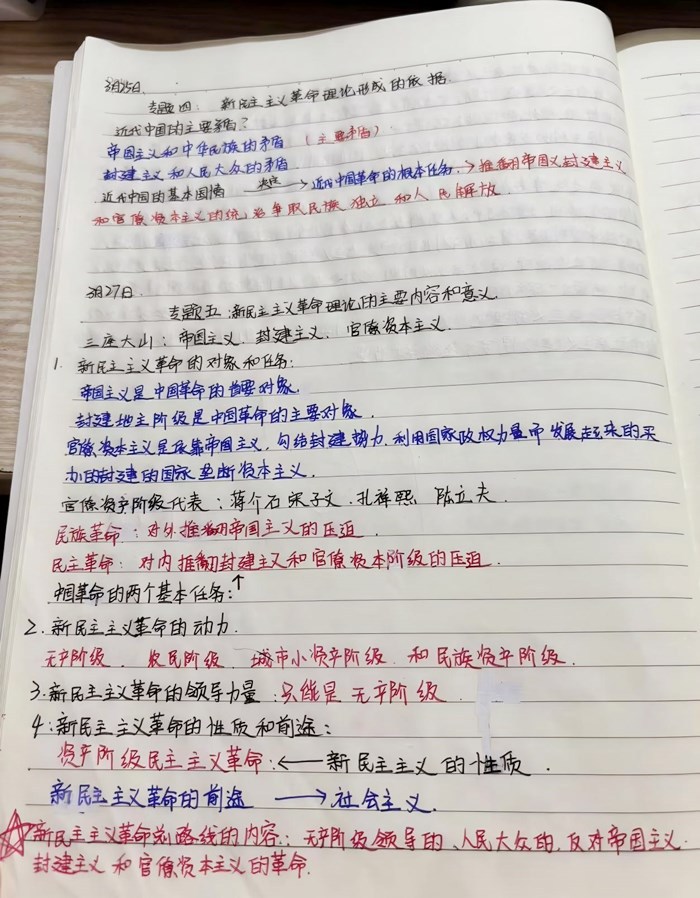 3月25日.
专题四: 新民主主义革命理论形成的依据.
近代中国的主要矛盾?
帝国主义和中华民族的矛盾 (主要矛盾)
封建主义和人民大众的矛盾
近代中国的基本国情 决定→近代中国革命的根本任务.→推翻帝国义封建主义
和官僚资本主义的统治争取民族独立和人民解放
3月27日.
专题五:新民主主义革命理论的主要内容和意义.
三座大山:帝国主义、封建主义、官僚资本主义.
1. 新民主主义革命的对象和任务:
帝国主义是中国革命的首要对象.
封建地主阶级是中国革命的主要对象.
官僚资本主义是依靠帝国主义、勾结封建势力、利用国家政权力量而发展起来的买
办的封建的国家垄断资本主义.
官僚资产阶级代表:蒋介石宋子文.孔祥熙 陈立夫.
民族革命:对外推翻帝国主义的压迫.
民主革命: 对内推翻封建主义和官僚资本阶级的压迫.
中国革命的两个基本任务:↑
2.新民主主义革命的动力.
无产阶级、农民阶级、城市小资产阶级和民族资产阶级.
3.新民主主义革命的领导力量:只能是无产阶级.
4:新民主主义革命的性质和前途:
资产阶级民主主义革命:←新民主主义的性质.
新民主主义革命的前途→社会主义.
☆新民主主义革命总路线的内容:无产阶级领导的、人民大众的,反对帝国主义.
封建主义和官僚资本主义的革命.